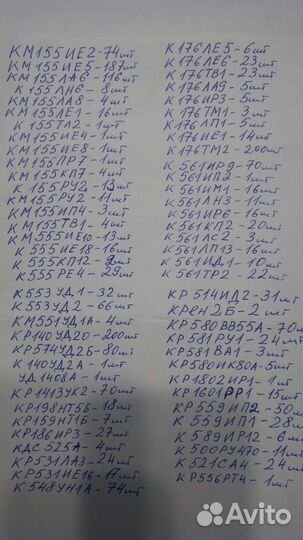 КМ155ИЕ2-74шт
КМ155ИЕ5-187шт
КМ155ЛА6-116шт
К155ЛН6-8шт
КМ155ЛА8-4шт
КМ155ЛЕ1-16шт
К155ТЛ2-1шт
КМ155ИЕ4-1шт
КМ155ИЕ8-1шт
КМ155ПР7-1шт
КМ155КП7-4шт
К155РУ2-13шт
КМ155РУ2-11шт
КМ155ИП4-3шт
КМ155ТВ1-4шт
КМ555ИЕ10-13шт
К555ИЕ18-16шт
К555КП12-2шт
К555РЕ4-29шт
К553УД1-32шт
К553УД2-66шт
КМ551УД1А-4шт
КР140УД20-200шт
КР574УД2Б-80шт
К140УД2А-1шт
УД1408А-1шт
КР1413УК2-70шт
КР198НТ5Б-18шт
КР159НТ1Б-7шт
КР186ИР3-27шт
КДС525А-4шт
КР531ЛА3-24шт
КР531ИЕ16-17шт
К548УН1А-74шт
К176ЛЕ5-6шт
К176ЛЕ6-23шт
К176ТВ1-23шт
К176ЛА9-5шт
К176ИР3-5шт
К176ТМ1-3шт
К176ЛП1-5шт
К176ИЕ1-14шт
К176ТМ2-200шт
К561ИР9-70шт
К561ИП2-1шт
К561ИМ1-16шт
К561ЛН3-11шт
К561ИР6-16шт
К561КП2-20шт
К561ЛС2-3шт
К561ЛП13-16шт
К561ИД1-10шт
К561ТР2-22шт
КР514ИД2-31шт
КРЕН2Б-2шт
КР580ВВ55А-70шт
КР581РУ1-24шт
КР581ВА1-3шт
КР580ИК80А-5шт
КР1802ИР1-1шт
КР1601РР1-15шт
КР559ИП2-50шт
К559ИП1-28шт
К589ИР12-6шт
К500РУ470-11шт
К521СА4-24шт
КР556РТ4-1шт
Avito